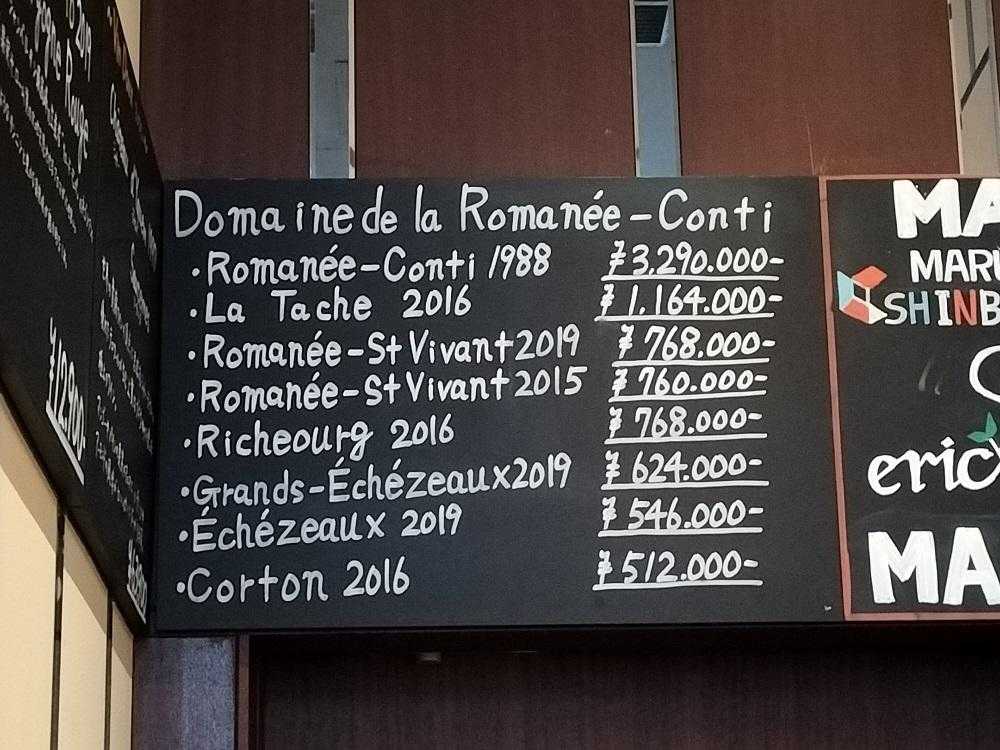 Domaine de la Romanée-Conti
・Romanée-Conti 1988 ¥3.290.000-
・La Tache 2016 ¥1.164.000-
・Romanée-St Vivant 2019 ¥768.000-
・Romanée-St Vivant 2015 ¥760.000-
・Richeourg 2016 ¥768.000-
・Grands-Échézeaux 2019 ¥624.000-
・Échézeaux 2019 ¥546.000-
・Corton 2016 ¥512.000-
2019
Rouge
MA
MARU
SHINB
eric
MA